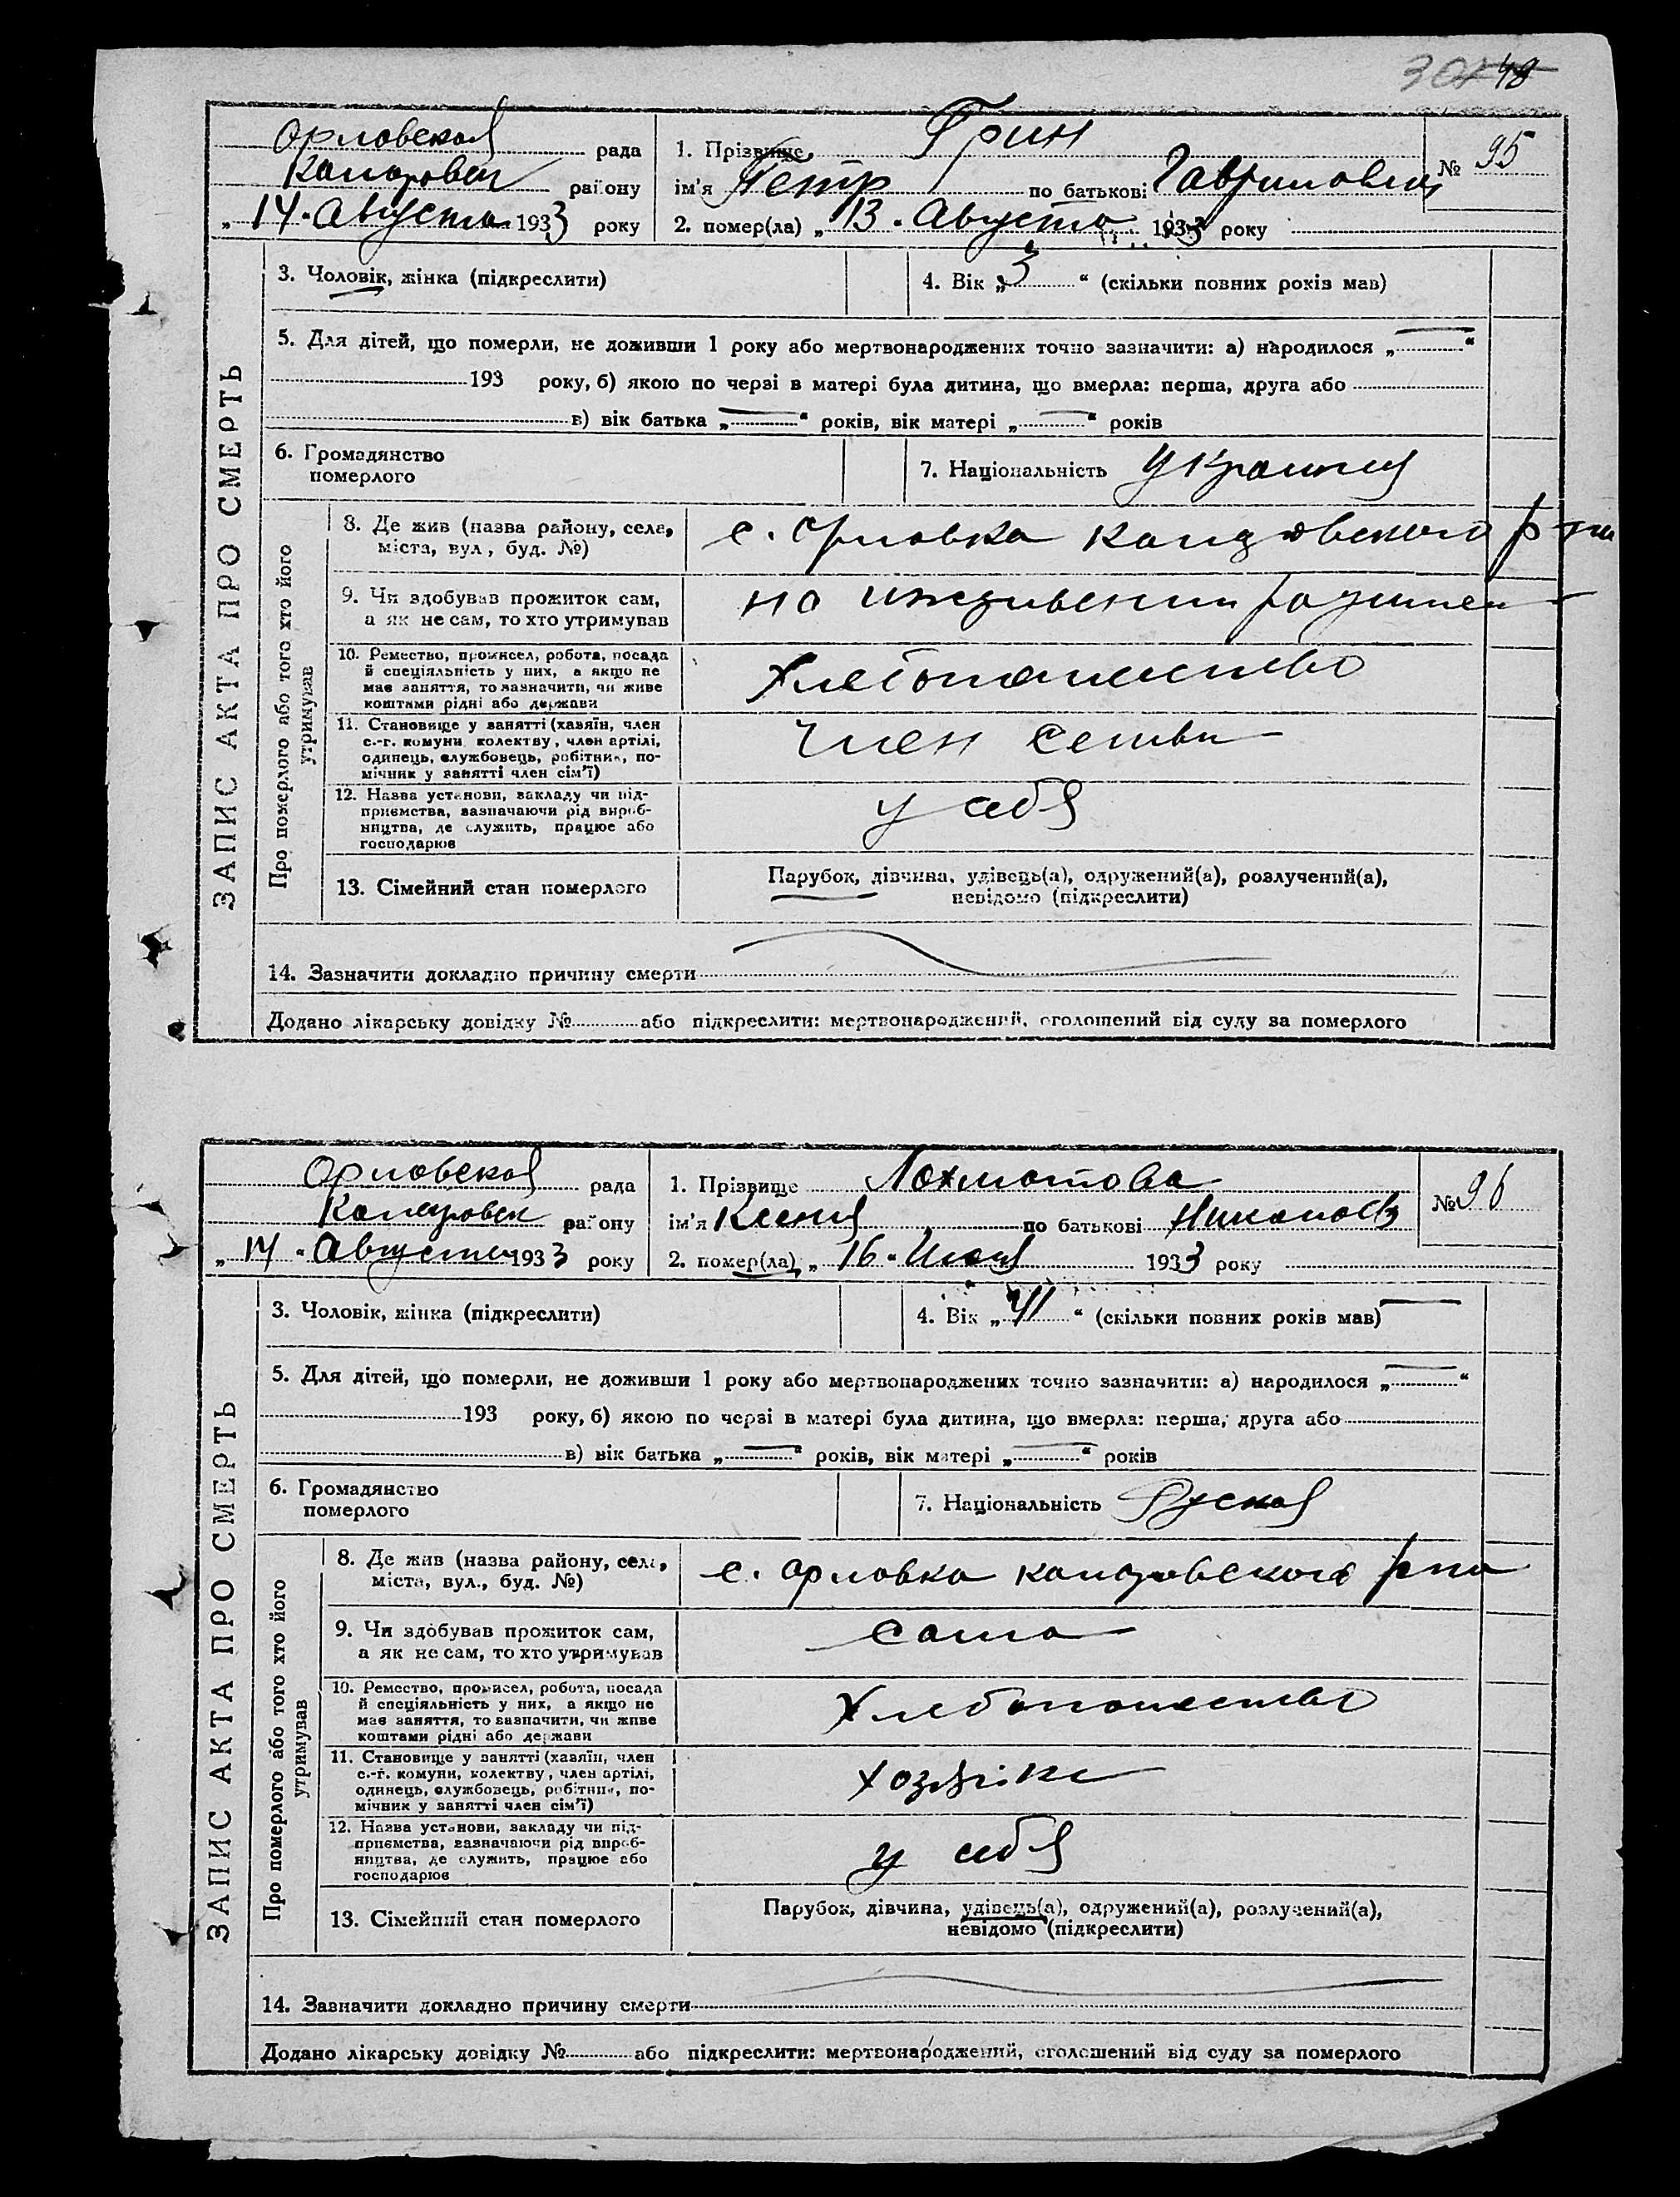 48
Орловской рада
района Капаровск району
„14“ Августа 1933 року
1. Прізвище Грин
ім'я Петр по батькові Гаврилович
№ 95
2. помер(ла) „13“ Августа 1933 року
ЗАПИС АКТА ПРО СМЕРТЬ
3. Чоловік, жінка (підкреслити)
4. Вік „3“ (скільки повних років мав)
5. Для дітей, що померли, не доживши 1 року або мертвонароджених точно зазначити: а) народилося „ “
193 року, б) якою по черзі в матері була дитина, що вмерла: перша, друга або
в) вік батька „ “ років, вік матері „ “ років
6. Громадянство
померлого
7. Національність Украинец
Про померлого або того хто його
утримував
8. Де жив (назва району, села,
міста, вул, буд. №)
с. Орловка р-на
9. Чи здобував прожиток сам,
а як не сам, то хто утримував
на иждивении родителей
10. Ремество, промисел, робота, посада
й спеціяльність у них, а якщо не
має заняття, то зазначити, чи живе
коштами рідні або держави
Хлебопашество
11. Становище у занятті (хазяїн, член
с.-г. комуни, колектву, член артілі,
одинець, службовець, робітник, по-
мічник у занятті член сім'ї)
Член семьи
12. Назва установи, закладу чи під-
приємства, зазначаючи рід вироб-
ництва, де служить, працює або
господарює
у себя
13. Сімейний стан померлого
Парубок, дівчина, удівець(а), одружений(а), розлучений(а),
невідомо (підкреслити)
14. Зазначити докладно причину смерти
Додано лікарську довідку № або підкреслити: мертвонароджений, оголошений від суду за померлого
Орловской рада
району
„14“ Августа 1933 року
1. Прізвище Лохматова
ім'я Ксения по батькові
№ 96
2. помер(ла) „16“ 1933 року
ЗАПИС АКТА ПРО СМЕРТЬ
3. Чоловік, жінка (підкреслити)
4. Вік „41“ (скільки повних років мав)
5. Для дітей, що померли, не доживши 1 року або мертвонароджених точно зазначити: а) народилося „ “
193 року, б) якою по черзі в матері була дитина, що вмерла: перша, друга або
в) вік батька „ “ років, вік матері „ “ років
6. Громадянство
померлого
7. Національність Руская
Про померлого або того хто його
утримував
8. Де жив (назва району, села,
міста, вул., буд. №)
с. Орловка р-на
9. Чи здобував прожиток сам,
а як не сам, то хто утримував
сама
10. Ремество, промисел, робота, посада
й спеціяльність у них, а якщо не
має заняття, то зазначити, чи живе
коштами рідні або держави
Хлебопашество
11. Становище у занятті (хазяїн, член
с.-г. комуни, колектву, член артілі,
одинець, службовець, робітник, по-
мічник у занятті член сім'ї)
12. Назва установи, закладу чи під-
приємства, зазначаючи рід вироб-
ництва, де служить, працює або
господарює
у себя
13. Сімейний стан померлого
Парубок, дівчина, удівець(а), одружений(а), розлучений(а),
невідомо (підкреслити)
14. Зазначити докладно причину смерти
Додано лікарську довідку № або підкреслити: мертвонароджений, оголошений від суду за померлого